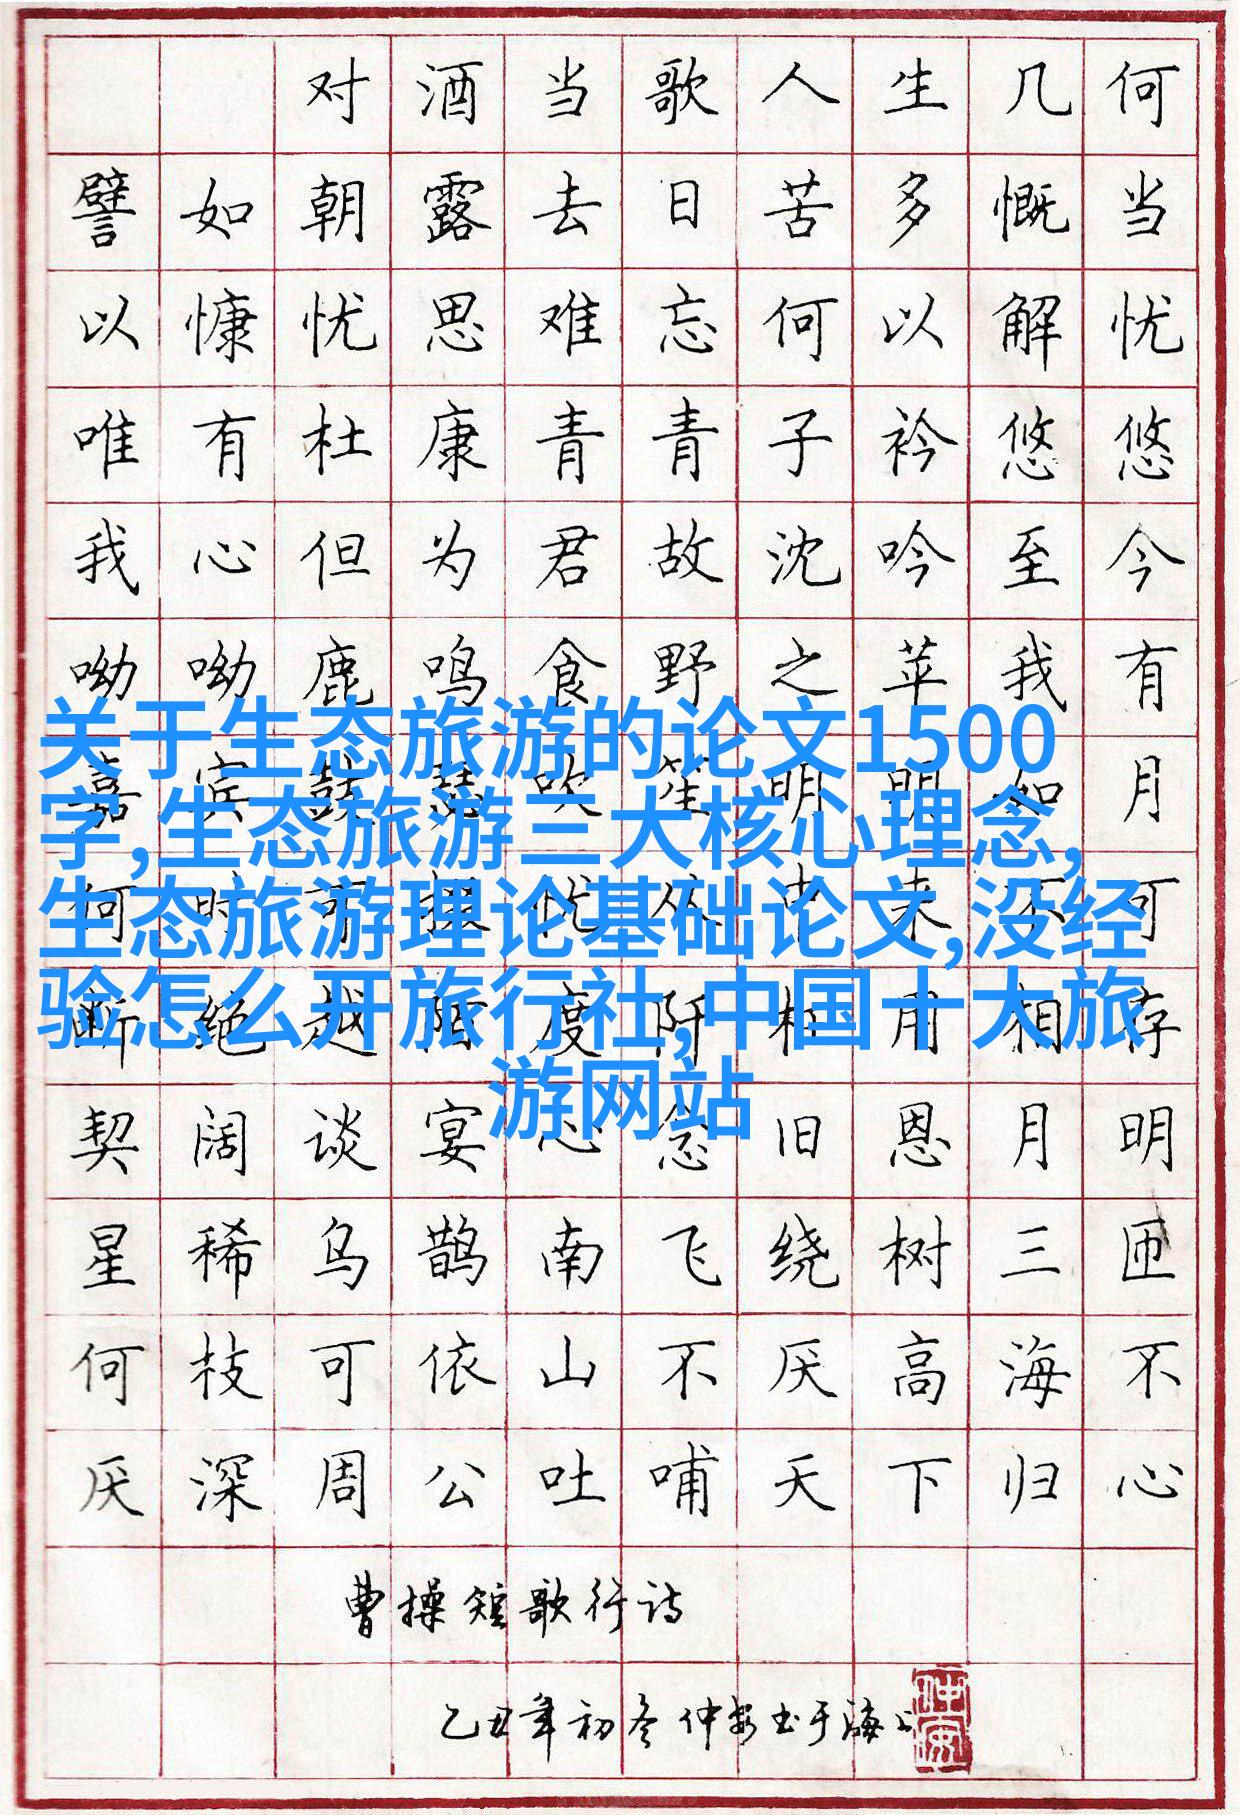 对酒当歌人生几何
譬如朝露去日苦多慨当
以慷忧思难忘何以解忧
唯有杜康青青子衿悠悠
我心但为君故沈吟至今
呦呦鹿鸣食野之苹我有
嘉宾鼓瑟吹笙明明如月
何时可掇忧从中来不可
断绝越陌度阡枉用相存
契阔谈宴心念旧恩月明
星稀乌鹊南飞绕树三匝
何枝可依山不厌高海不
厌深周公吐哺天下归心
曹操短歌行诗
乙丑年初冬仲安书于海上
仲安
关于生态旅游的论文1500
字,生态旅游三大核心理念,
生态旅游理论基础论文,没经
验怎么开旅行社,中国十大旅
游网站